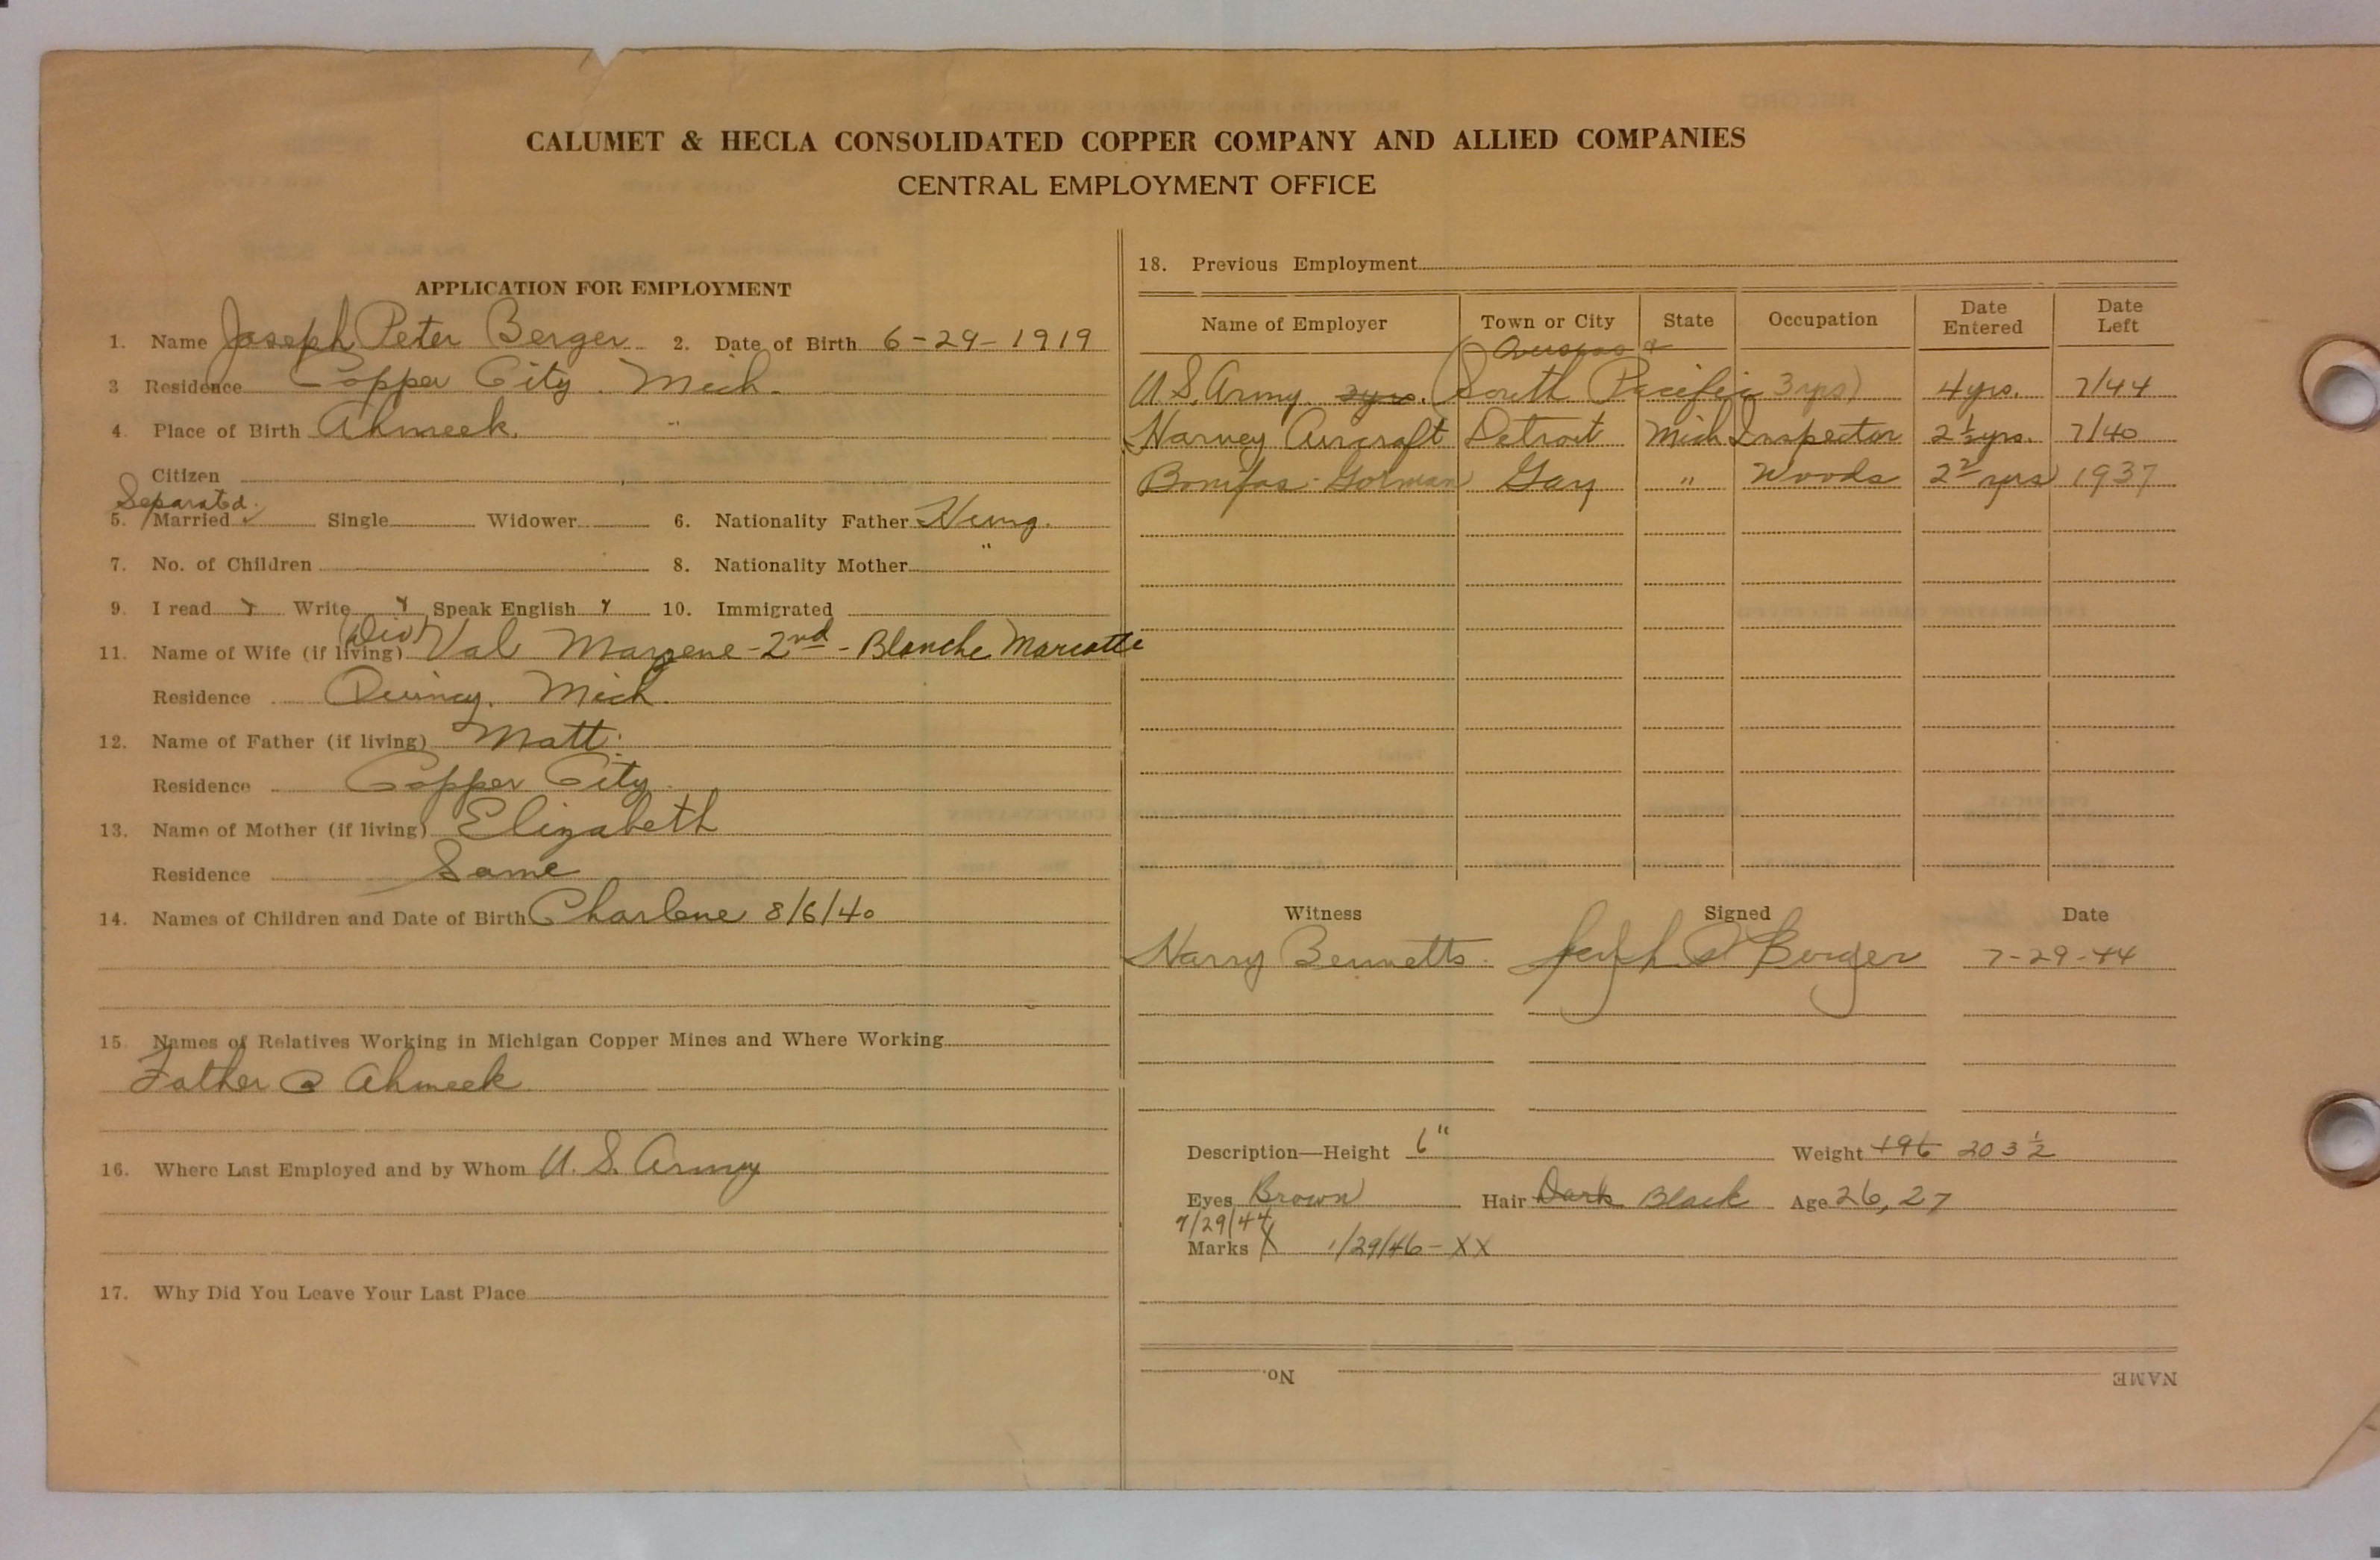 CALUMET & HECLA CONSOLIDATED COPPER COMPANY AND ALLIED COMPANIES
CENTRAL EMPLOYMENT OFFICE
APPLICATION FOR EMPLOYMENT
1. Name Joseph Peter Berger 2. Date of Birth 6-29-1919
3 Residence Copper City. Mich.
4. Place of Birth Ahmeek.
Citizen
Separated.
5. Married ✓ Single Widower 6. Nationality Father Hung.
7. No. of Children 8. Nationality Mother "
9. I read Write Speak English 10. Immigrated
11. Name of Wife (if living) (Div) Val - 2nd - Blanche Marcotte
Residence Quincy. Mich.
12. Name of Father (if living) Matt.
Residence Copper City.
13. Name of Mother (if living) Elizabeth
Residence Same
14. Names of Children and Date of Birth Charlene 8/6/40
15. Names of Relatives Working in Michigan Copper Mines and Where Working
Father @ Ahmeek
16. Where Last Employed and by Whom U.S. Army
17. Why Did You Leave Your Last Place
18. Previous Employment
Name of Employer Town or City State Occupation Date Entered Date Left
Overseas &
U.S. Army. (South Pacific 3 yrs) 4 yrs. 7/44
Harvey Aircraft Detroit Mich Inspector 2½ yrs. 7/40
Bonifas-Gorman " Woods 1937
Witness Signed Date
Harry Bennetts. Joseph P Berger 7-29-44
Description—Height 6" Weight 196 203½
Eyes Brown Hair Dark Black Age 26, 27
7/29/44
Marks X 1/29/46 - XX
No.
NAME